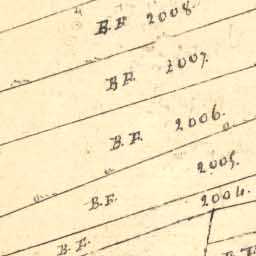 B.F. 2008
B.F. 2007.
B.F. 2006.
B.F. 2005.
B.F. 2004.